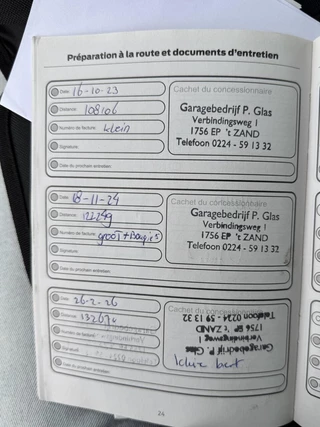 Préparation à la route et documents d'entretien
Date: 16-10-23
Distance: 108106
Numéro de facture: klein
Signature:
Date du prochain entretien:
Cachet du concessionnaire
Garagebedrijf P. Glas
Verbindingsweg 1
1756 EP 't ZAND
Telefoon 0224 - 59 13 32
Date: 18-11-24
Distance:
Numéro de facture: groot + Bougies
Signature:
Date du prochain entretien:
Cachet du concessionnaire
Garagebedrijf P. Glas
Verbindingsweg 1
1756 EP 't ZAND
Telefoon 0224 - 59 13 32
Date: 26-2-26
Distance:
Numéro de facture:
Signature:
Date du prochain entretien:
Cachet du concessionnaire
Garagebedrijf P. Glas
Verbindingsweg 1
1756 EP 't ZAND
Telefoon 0224 - 59 13 32
24